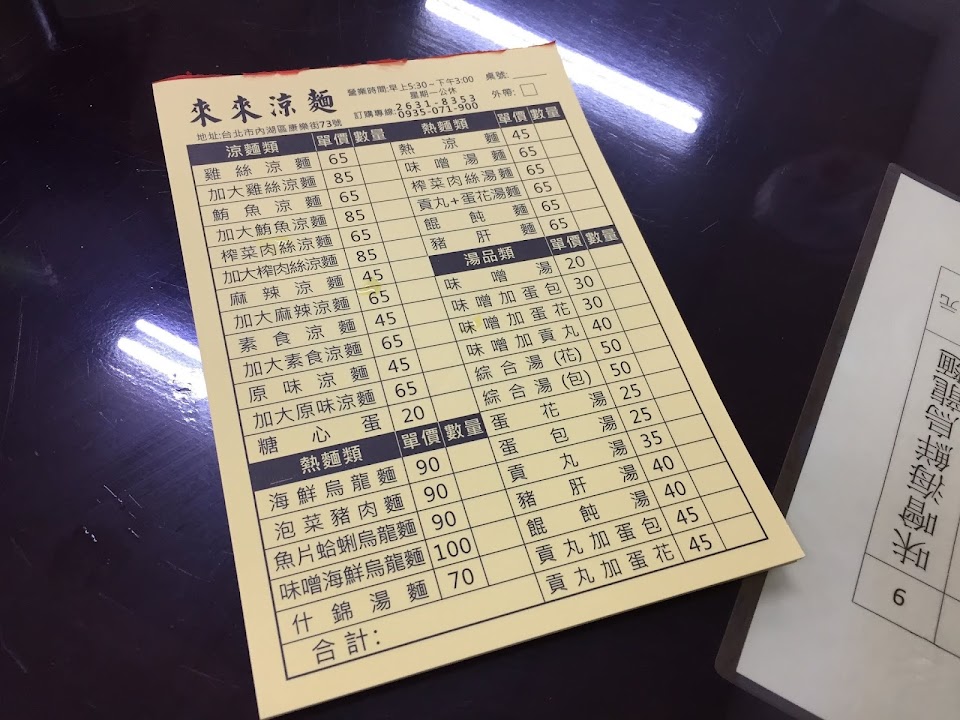 來來涼麵
營業時間:早上5:30~下午3:00
星期一公休
訂購專線:2631-8353
0935-071-900
桌號:
外帶:
地址:台北市內湖區康樂街73號
涼麵類 單價 數量
雞絲涼麵 65
加大雞絲涼麵 85
鮪魚涼麵 65
加大鮪魚涼麵 85
榨菜肉絲涼麵 65
加大榨肉絲涼麵 85
麻辣涼麵 45
加大麻辣涼麵 65
素食涼麵 45
加大素食涼麵 65
原味涼麵 45
加大原味涼麵 65
糖心蛋 20
熱麵類 單價 數量
海鮮烏龍麵 90
泡菜豬肉麵 90
魚片蛤蜊烏龍麵 90
味噌海鮮烏龍麵 100
什錦湯麵 70
合計:
熱麵類 單價 數量
熱涼麵 45
味噌湯麵 65
榨菜肉絲湯麵 65
貢丸+蛋花湯麵 65
餛飩麵 65
豬肝麵 65
湯品類 單價 數量
味噌湯 20
味噌加蛋包 30
味噌加蛋花 30
味噌加貢丸 40
綜合湯(花) 50
綜合湯(包) 50
蛋花湯 25
蛋包湯 25
貢丸湯 35
豬肝湯 40
餛飩湯 40
貢丸加蛋包 45
貢丸加蛋花 45
元
味噌海鮮烏龍麵
6